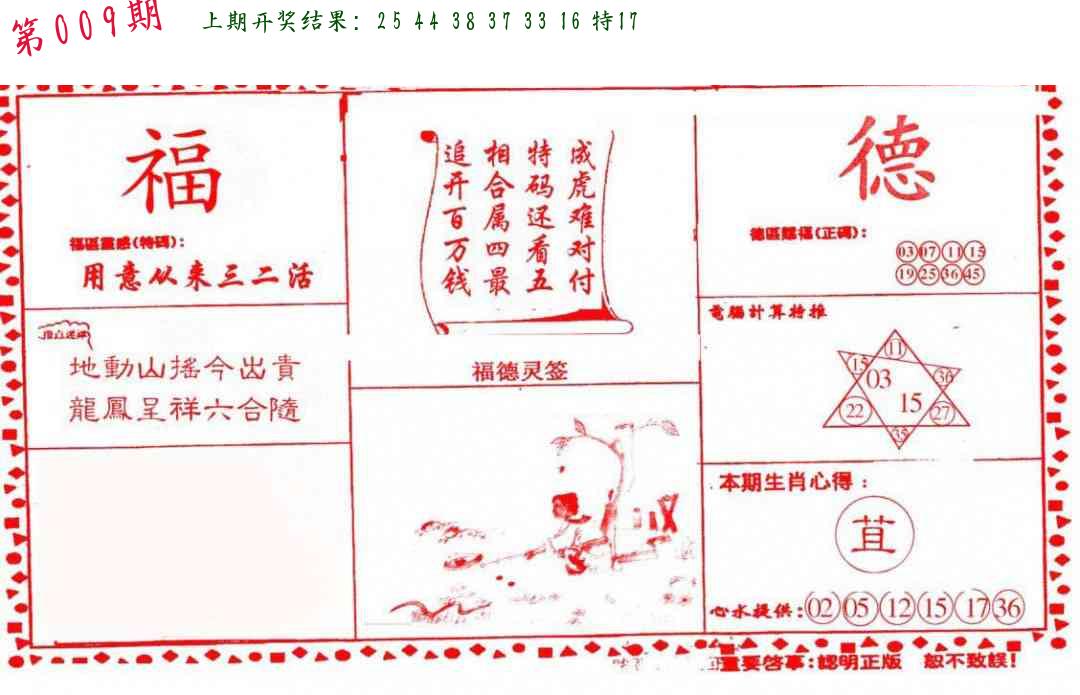 第009期
上期开奖结果: 25 44 38 37 33 16 特17
福
福區靈感(特碼):
用意从来三二活
地動山搖今出貴
龍鳳呈祥六合隨
成虎难对付
特码还看五
相合属四最
追开百万钱
福德灵签
德
德區賜福(正碼):
03 07 11 15
19 25 36 45
電腦計算特推
11
15 36
03
15
22 27
35
本期生肖心得:
苴
心水提供: 02 05 12 15 17 36
重要啓事:認明正版 恕不致誤!